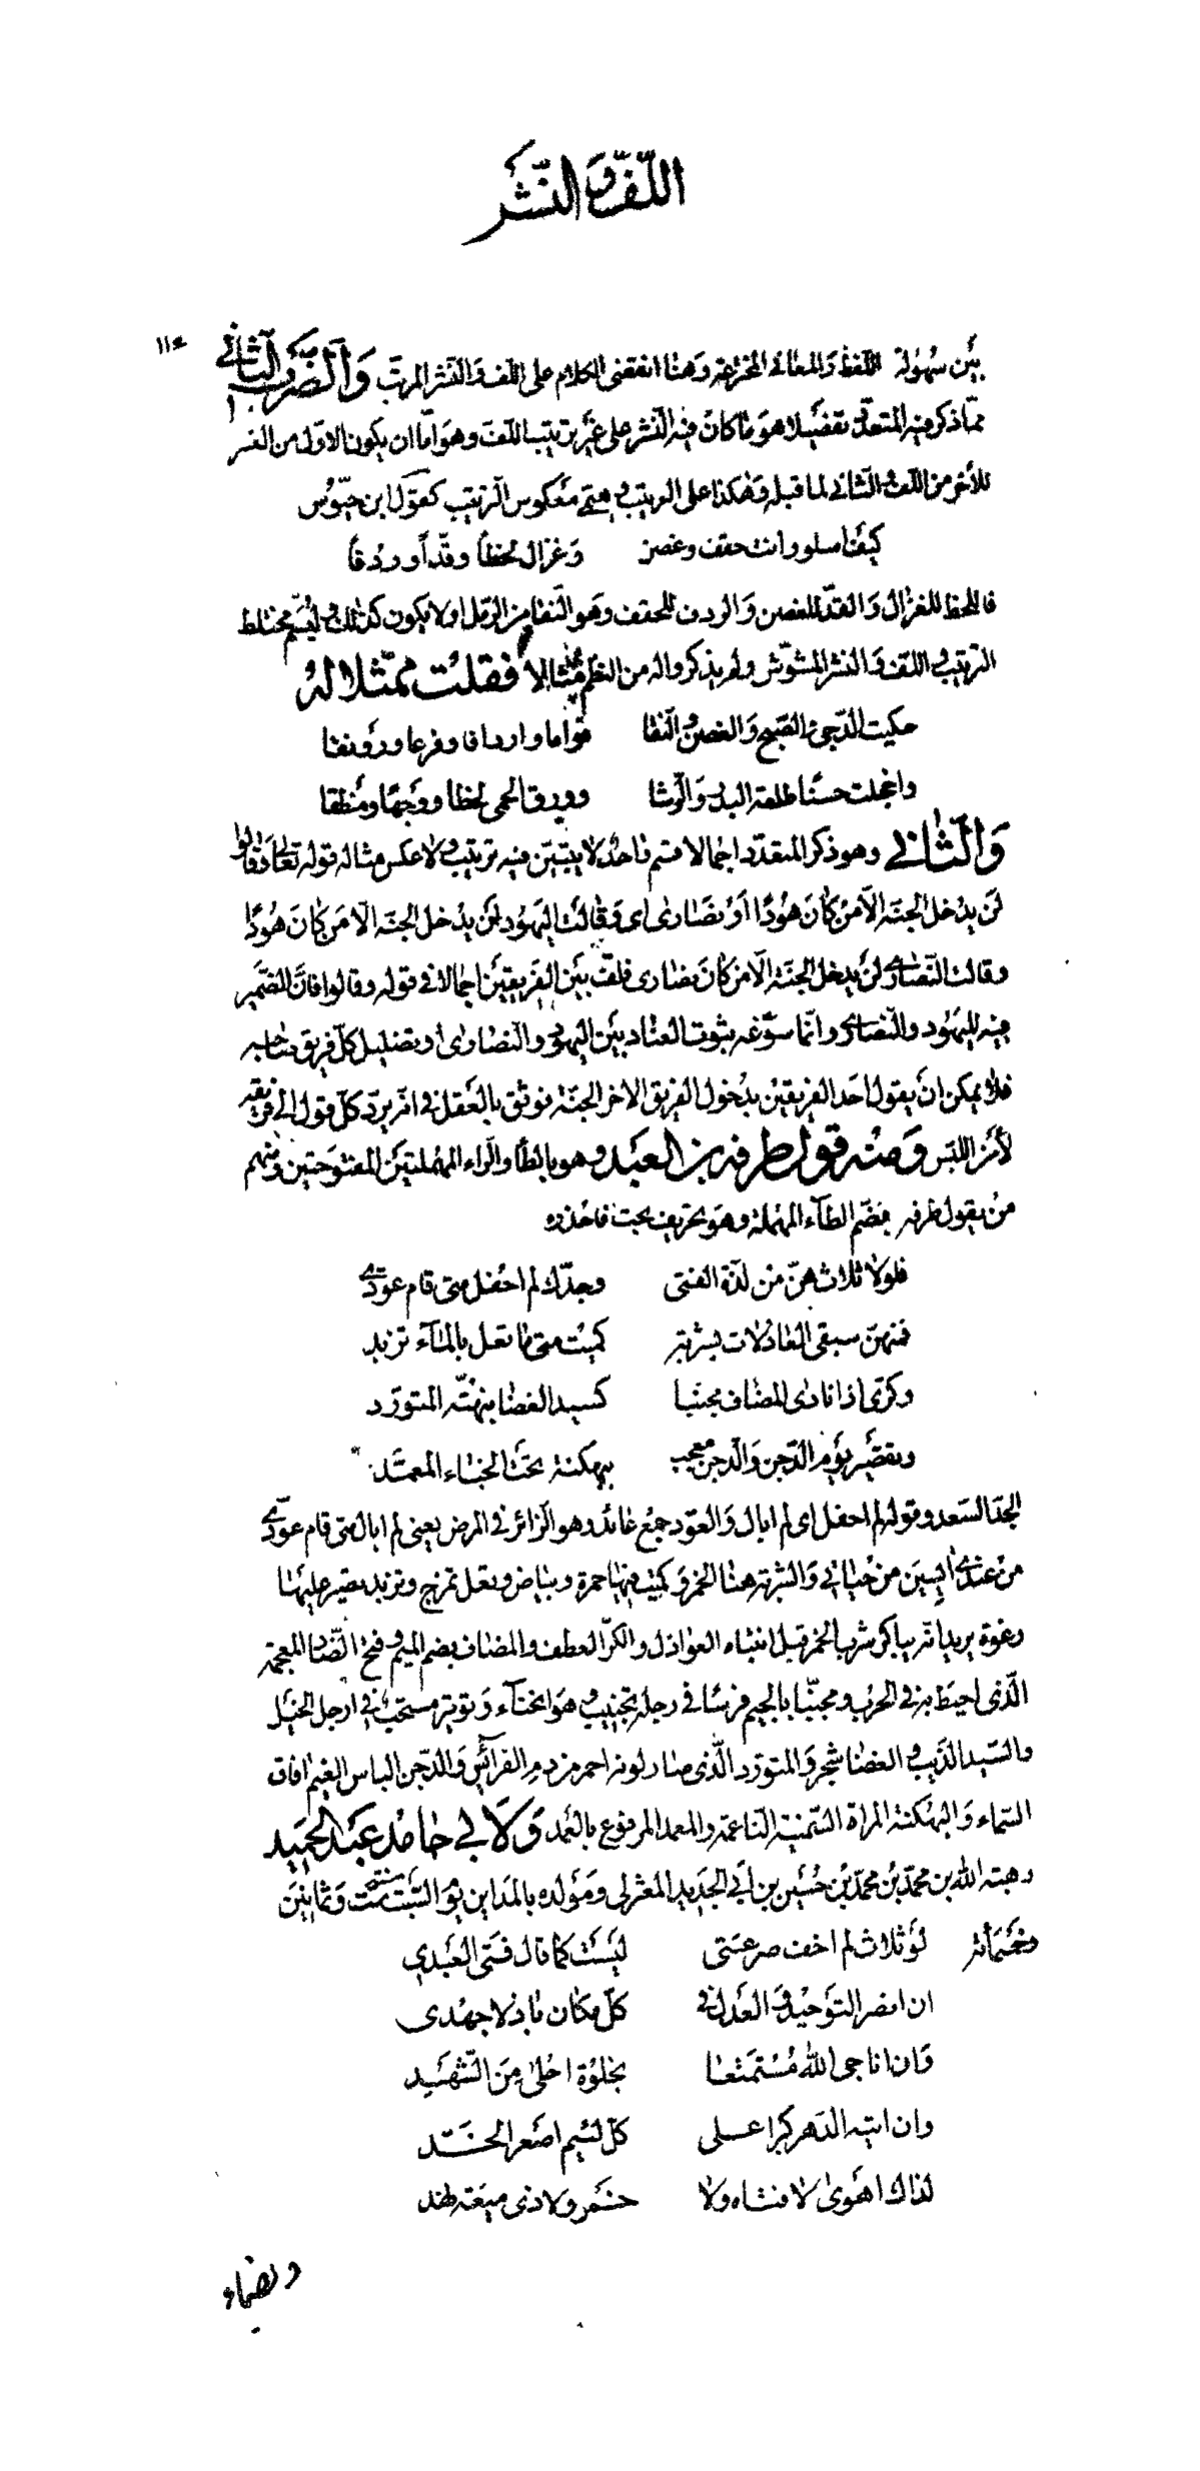 اللّفّ والنّشر
١١٤
بين سهولة اللفظ والمعاني المخترعة وهنا انقضى الكلام على اللف والنشر المرتب والضرب الثاني
مما ذكر فيه المتعدد تفصيلا هو ما كان فيه النشر على غير ترتيب اللف وهو اما ان يكون الاول من النشر
للاخر من اللف والثاني لما قبله وهكذا على الترتيب ويسمى معكوس الترتيب كقول ابن حيوس
كيف اسلو وانت حقف وغصن وغزال لحظا وقدا وردفا
فاللحظ للغزال والقد للغصن والردف للحقف وهو النقا من الرمل او لا يكون كذلك وليسم مختلط
الترتيب واللف والنشر المشوش ولم يذكروا له من النظم مثالا فقلت ممثلا له
حكيت الدجى والصبح والغصن والنقا قواما واردافا وفرعا ورونقا
واخجلت حسنا طلعة البدر والرشا وورق الحمى لحظا ووجها ومنطقا
والثاني وهو ذكر المتعدد اجمالا قسم واحد لا يتبين فيه ترتيب ولا عكس مثاله قوله تعالى وقالوا
لن يدخل الجنة الا من كان هودا او نصارى اى وقالت اليهود لن يدخل الجنة الا من كان هودا
وقالت النصارى لن يدخل الجنة الا من كان نصارى فلف بين الفريقين اجمالا في قوله وقالوا فان الضمير
فيه لليهود والنصارى وانما سوغه ثبوت العناد بين اليهود والنصارى او تضليل كل فريق صاحبه
فلا يمكن ان يقول احد الفريقين بدخول الفريق الاخر الجنة فوثق بالعقل في انه يرد كل قول الى فريقه
لأمن اللبس ومنه قول طرفه بن العبد وهو بالطا والراء المهملتين المفتوحتين ومنهم
من يقول طرفه بضم الطاء المهملة وهو تحريف بحت فاحذره
فلولا ثلاث هن من لذة الفتى وجدك لم احفل متى قام عودى
فمنهن سبقى العاذلات بشربة كميت متى ما تعل بالماء تزبد
وكرى اذا نادى المضاف مجنبا كسيد الغضا نبهته المتورد
وتقصير يوم الدجن والدجن معجب ببهكنة تحت الخباء المعمد
الجد السعد وقوله لم احفل اى لم ابال والعود جمع عائد وهو الزائر في المرض يعنى لم ابال متى قام عودى
من عندى آيسين من حياتي والشربة هنا الخمر وكميت فيها حمرة وبياض وتعل تمزج وتزبد يصير عليها
رغوة يريد انه يباكر شرب الخمر قبل انتباه العواذل والكر العطف والمضاف بضم الميم وفتح الضاد المعجمة
الذى احيط به في الحرب ومجنبا بالجيم فرسا في رجله تجنيب وهو انحناء وتوتير مستحب في ارجل الخيل
والسيد الذيب والغضا شجر والمتورد الذى صار لونه احمر من دم الفرائس والدجن الباس الغيم افاق
السماء والبهكنة المراة السمينة الناعمة والمعمد المرفوع بالعمد ولابي حامد عبد الحميد
بن هبة الله بن محمد بن محمد بن حسين بن ابي الحديد المعتزلى ومولده بالمداين يوم السبت سنة ست وثمانين
وخمسمائة لو ثلاث لم اخف صرعتى ليست كما قال فتى العبدي
ان انصر التوحيد والعدل في كل مكان باذلا جهدى
وان اناجى الله مستمتعا بخلوة احلى من الشهد
وان اتيه الدهر كبرا على كل لئيم اصعر الخد
لذاك اهوى لا فتاه ولا خمر ولا ذى ميعة نهد